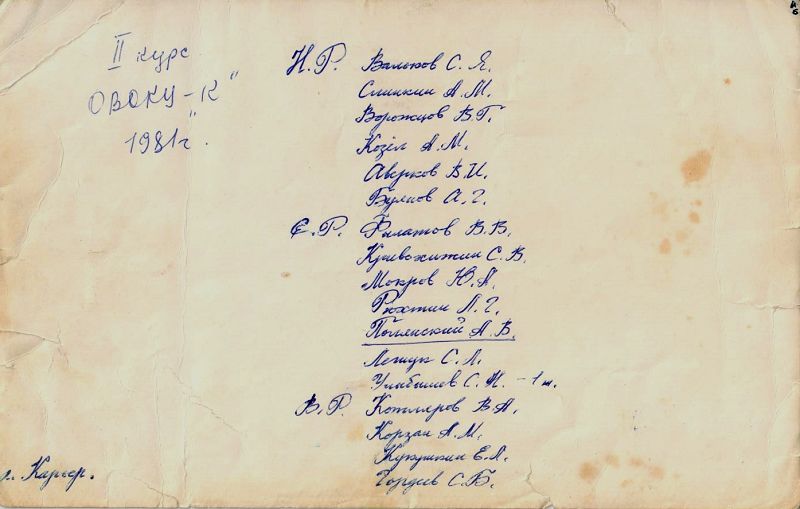 II курс
ОВОКУ-"К"
1981г.
Н.Р. Валоков С. Я.
Слинкин А.М.
Ворожцов В.Г.
Козёл А.М.
Аверков В.И.
Буянов А.Г.
С.Р. Филатов В.В.
Кривохижин С.В.
Мокров Ю.А.
Рюхтин Л.Г.
Полянский А.В.
Лещук С.Л.
С.Н. - 1 ш.
В.Р. Котляров В.А.
Корзан А.М.
Кукушкин Е.Л.
Гордеев С.Б.
г. Карьер.